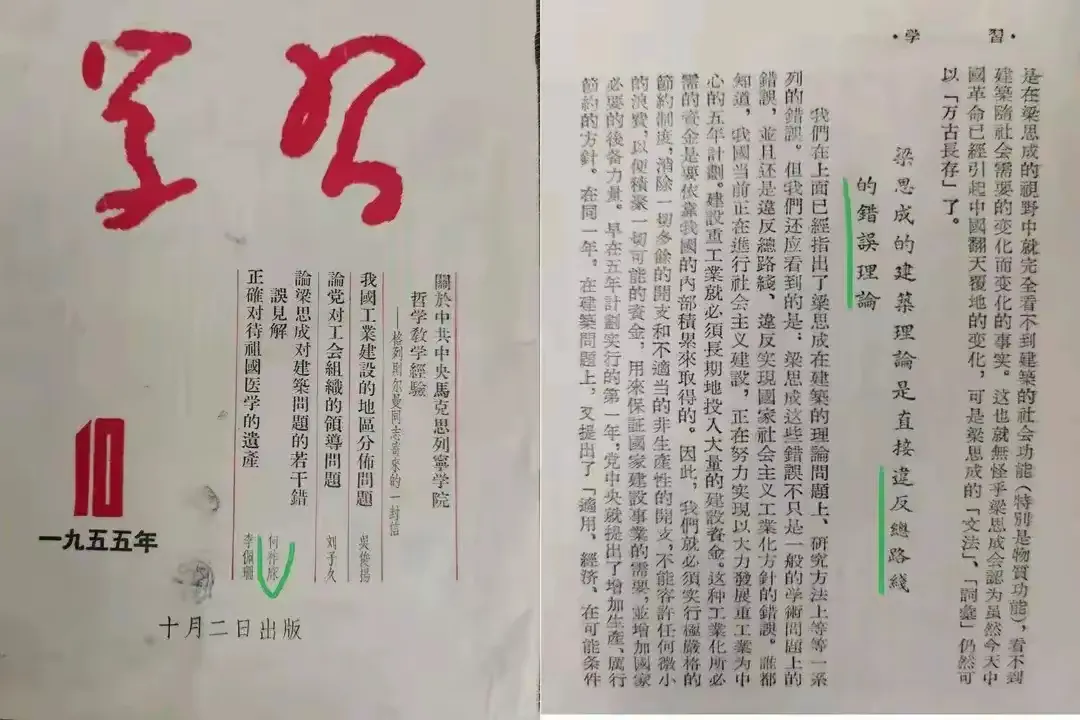 学习
關於中共中央馬克思列寧学院
哲学教学經驗
——格列則尔曼同志寄來的一封信
我國工業建設的地區分佈問題 吳俊揚
論党对工会組織的領導問題 刘子久
論梁思成对建築問題的若干錯
誤見解 何祚庥
正確对待祖國医学的遺產 李佩珊
10
一九五五年
十月二日出版
·學 習·
是在梁思成的視野中就完全看不到建築的社会功能(特別是物質功能),看不到
建築隨社会需要的变化而变化的事实。這也就無怪乎梁思成会認为虽然今天中
國革命已經引起中國翻天覆地的变化,可是梁思成的「文法」、「詞彙」仍然可
以「万古長存」了。
梁思成的建築理論是直接違反總路綫
的錯誤理論
我們在上面已經指出了梁思成在建築的理論問題上、研究方法上等等一系
列的錯誤。但我們还应看到的是:梁思成這些錯誤不只是一般的学術問題上的
錯誤,並且还是違反總路綫、違反实現國家社会主义工業化方針的錯誤。誰都
知道,我國当前正在進行社会主义建設,正在努力实現以大力發展重工業为中
心的五年計劃。建設重工業就必須長期地投入大量的建設資金。这种工業化所必
需的資金是要依靠我國的內部積累來取得的。因此,我們就必須实行極嚴格的
節約制度,消除一切多餘的開支和不適当的非生產性的開支,不能容許任何微小
的浪費,以便積聚一切可能的資金,用來保証國家建設事業的需要,並增加國家
必要的後备力量。早在五年計劃实行的第一年,党中央就提出了增加生產、厲行
節約的方針。在同一年,在建築問題上,又提出了「適用、經济、在可能条件